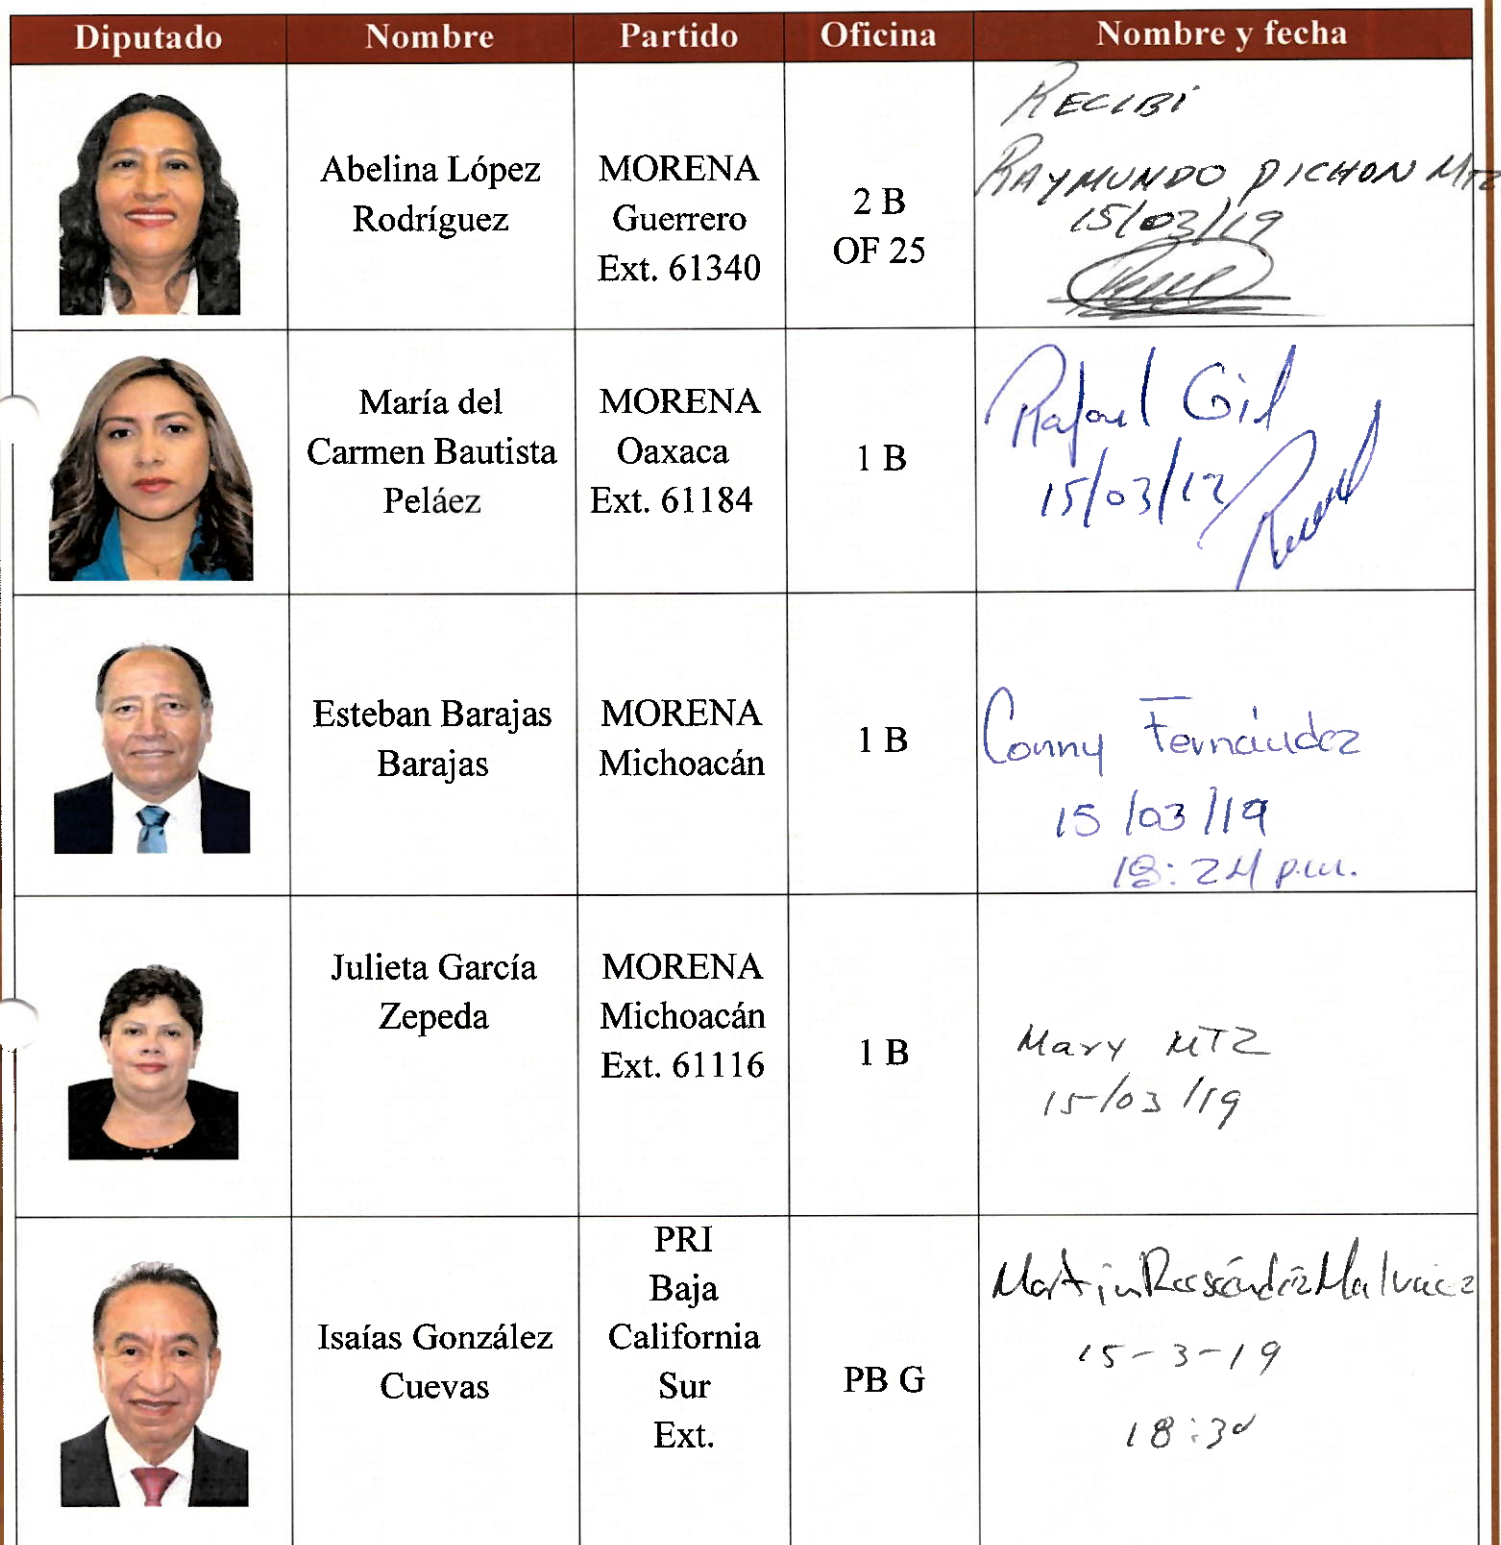 Diputado Nombre Partido Oficina Nombre y fecha
Abelina López
Rodríguez
MORENA
Guerrero
Ext. 61340
2 B
OF 25
RECIBÍ
RAYMUNDO PICHON MTZ
15/03/19
María del
Carmen Bautista
Peláez
MORENA
Oaxaca
Ext. 61184
1 B
Rafael Gil
15/03/19
Esteban Barajas
Barajas
MORENA
Michoacán
1 B
Conny Fernández
15/03/19
18:24 p.m.
Julieta García
Zepeda
MORENA
Michoacán
Ext. 61116
1 B
Mary MTZ
15/03/19
Isaías González
Cuevas
PRI
Baja
California
Sur
Ext.
PB G
Martin
15-3-19
18:30